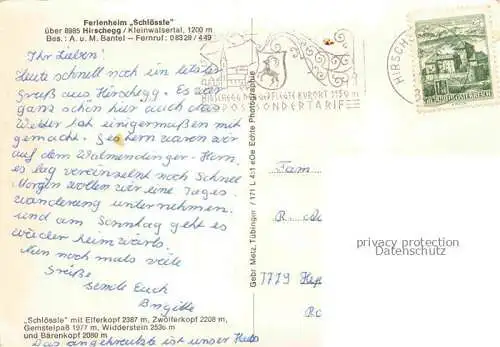 Ferienheim „Schlössle"
über 8985 Hirschegg / Kleinwalsertal, 1200 m
Bes.: A. u. M. Bantel – Fernruf: 08329/449
Ihr Lieben!
Heute schnell noch ein letzter
Gruß aus Hirschegg. Es war
ganz schön hier auch das
Wetter hat einigermaßen mit
gemacht. Gestern waren wir
auf dem Walmendinger-Horn,
es lag vereinzelt noch Schnee
Morgen wollen wir eine Tages
wanderung unternehmen.
und am Sonntag geht es
wieder heimwärts.
Nun noch mals viele
Grüße
sende Euch
Brigitte
„Schlössle" mit Elferkopf 2387 m, Zwölferkopf 2208 m,
Gemstelpaß 1977 m, Widderstein 2536 m
und Bärenkopf 2080 m
Das angekreuzte ist unser Haus
Gebr. Metz, Tübingen / 171 L 451 eOe Echte Photographie
HIRSCHEGG GEPFLEGTE KURORT
POST SONDERTARIF
HIRSCH
REPUBLIK ÖSTERREICH
Fam
R.
7779
privacy protection
Datenschutz